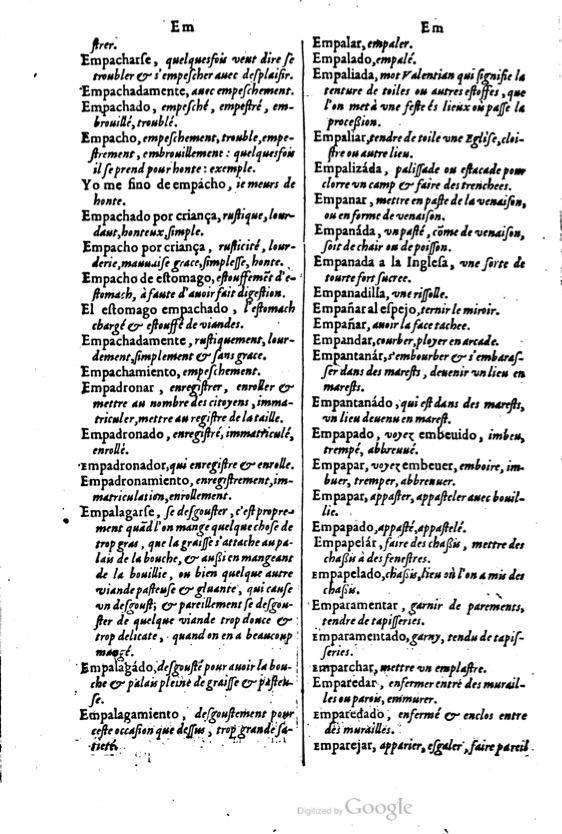 Em
ſtrer.
Empacharſe, quelquesfois veut dire ſe
troubler & s'empeſcher auec deſplaiſir.
Empachadamente, auec empeſchement.
Empachado, empeſché, empeſtré, em-
brouillé, troublé.
Empacho, empeſchement, trouble, empe-
ſtrement, embrouillement : quelquesfois
il ſe prend pour honte : exemple.
Yo me fino de empácho, ie meurs de
honte.
Empachado por criança, ruſtique, lour-
daut, honteux, ſimple.
Empacho por criança, ruſticité, lour-
derie, mauuaiſe grace, ſimpleſſe, honte.
Empacho de eſtomago, eſtouffemẽt d'e-
ſtomach, à faute d'auoir fait digeſtion.
El eſtomago empachado, l'eſtomach
chargé & eſtouffé de viandes.
Empachadamente, ruſtiquement, lour-
dement, ſimplement & ſans grace.
Empachamiento, empeſchement.
Empadronar, enregiſtrer, enroller &
mettre au nombre des citoyens, imma-
triculer, mettre au regiſtre de la taille.
Empadronado, enregiſtré, immatriculé,
enrollé.
Empadronador, qui enregiſtre & enrolle.
Empadronamiento, enregiſtrement, im-
matriculation, enrollement.
Empalagarſe, ſe deſgouſter, c'eſt propre-
ment quãd l'on mange quelque choſe de
trop gras, que la graiſſe s'attache au pa-
lais de la bouche, & auſſi en mangeant
de la bouillie, ou bien quelque autre
viande paſteuſe & gluante, qui cauſe
vn deſgouſt; & pareillement ſe deſgou-
ſter de quelque viande trop douce &
trop delicate, quand on en a beaucoup
mangé.
Empalagádo, deſgouſté pour auoir la bou-
che & palais pleine de graiſſe & paſteu-
ſe.
Empalagamiento, deſgouſtement pour
ceſte occaſion que deſſus, trop grande ſa-
tieté.
Em
Empalar, empaler.
Empalado, empalé.
Empaliada, mot Valentian qui ſignifie la
tenture de toiles ou autres eſtoffes, que
l'on met à vne feſte és lieux où paſſe la
proceſſion.
Empaliar, tendre de toile vne Egliſe, cloi-
ſtre ou autre lieu.
Empalizáda, paliſſade ou eſtacade pour
clorre vn camp & faire des trenchees.
Empanar, mettre en paſte de la venaiſon,
ou en forme de venaiſon.
Empanáda, vn paſté, cõme de venaiſon,
ſoit de chair ou de poiſſon.
Empanada a la Ingleſa, vne ſorte de
tourte fort ſucree.
Empanadilla, vne riſſolle.
Empañar al eſpejo, ternir le miroir.
Empañar, auoir la face tachee.
Empandar, courber, ployer en arcade.
Empantanár, s'embourber & s'embaraſ-
ſer dans des mareſts, deuenir vn lieu en
mareſts.
Empantanádo, qui eſt dans des mareſts,
vn lieu deuenu en mareſt.
Empapado, voyez embeuido, imbeu,
trempé, abbreuué.
Empapar, voyez embeuer, emboire, im-
buer, tremper, abbreuuer.
Empapar, appaſter, appaſteler auec bouil-
lie.
Empapado, appaſté, appaſtelé.
Empapelár, faire des chaſſis, mettre des
chaſſis à des feneſtres.
Empapelado, chaſſis, lieu où l'on a mis des
chaſſis.
Emparamentar, garnir de paremens,
tendre de tapiſſeries.
Emparamentado, garny, tendu de tapiſ-
ſeries.
Emparchar, mettre vn emplaſtre.
Emparedar, enfermer entre des murail-
les ou parois, emmurer.
Emparedado, enfermé & enclos entre
des murailles.
Emparejar, apparier, eſgaler, faire pareil
Digitized by Google